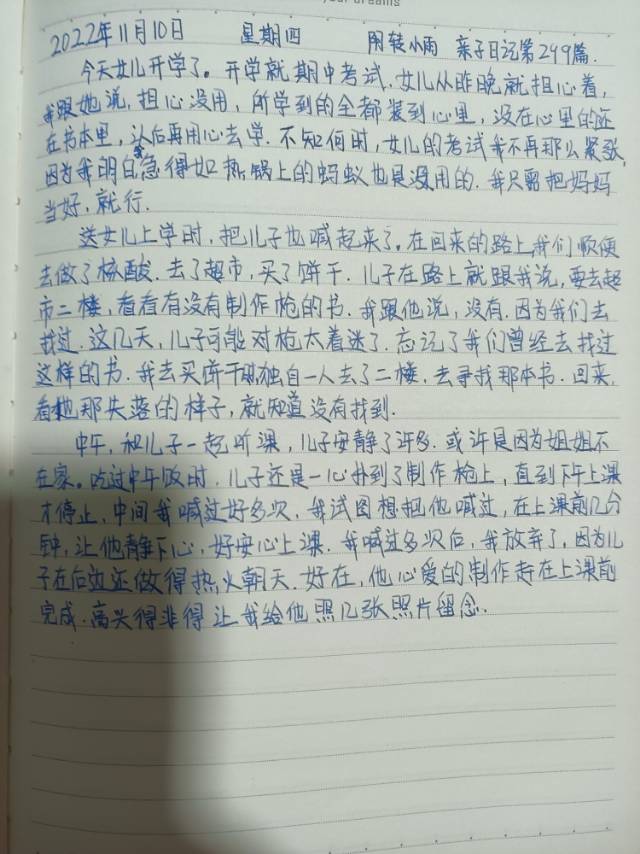 your dreams
2022年11月10日 星期四 阴转小雨 亲子日记第299篇.
今天女儿开学了。开学就期中考试.女儿从昨晚就担心着,
我跟她说,担心没用,所学到的全都装到心里,没在心里的还
在书本里,以后再用心去学.不知何时,女儿的考试我不再那么紧张,
因为我明白,急得如热锅上的蚂蚁也是没用的.我只需把妈妈
当好,就行.
送女儿上学时,把儿子也喊起来了。在回来的路上,我们顺便
去做了核酸.去了超市,买了饼干.儿子在路上就跟我说,要去超
市二楼,看看有没有制作枪的书.我跟他说,没有.因为我们去
找过.这几天,儿子可能对枪太着迷了.忘记了我们曾经去找过
这样的书.我去买饼干时,独自一人去了二楼,去寻找那本书.回来,
看他那失落的样子,就知道没有找到.
中午,和儿子一起听课,儿子安静了许多.或许是因为姐姐不
在家。吃过中午饭时.儿子还是一心扑到了制作枪上,直到下午上课
才停止,中间我喊过好多次,我试图想把他喊过,在上课前几分
钟,让他静下心,好安心上课.我喊过多次后,我放弃了,因为儿
子在后边还做得热火朝天.好在,他心爱的制作赶在上课前
完成.高兴得非得让我给他照几张照片留念.